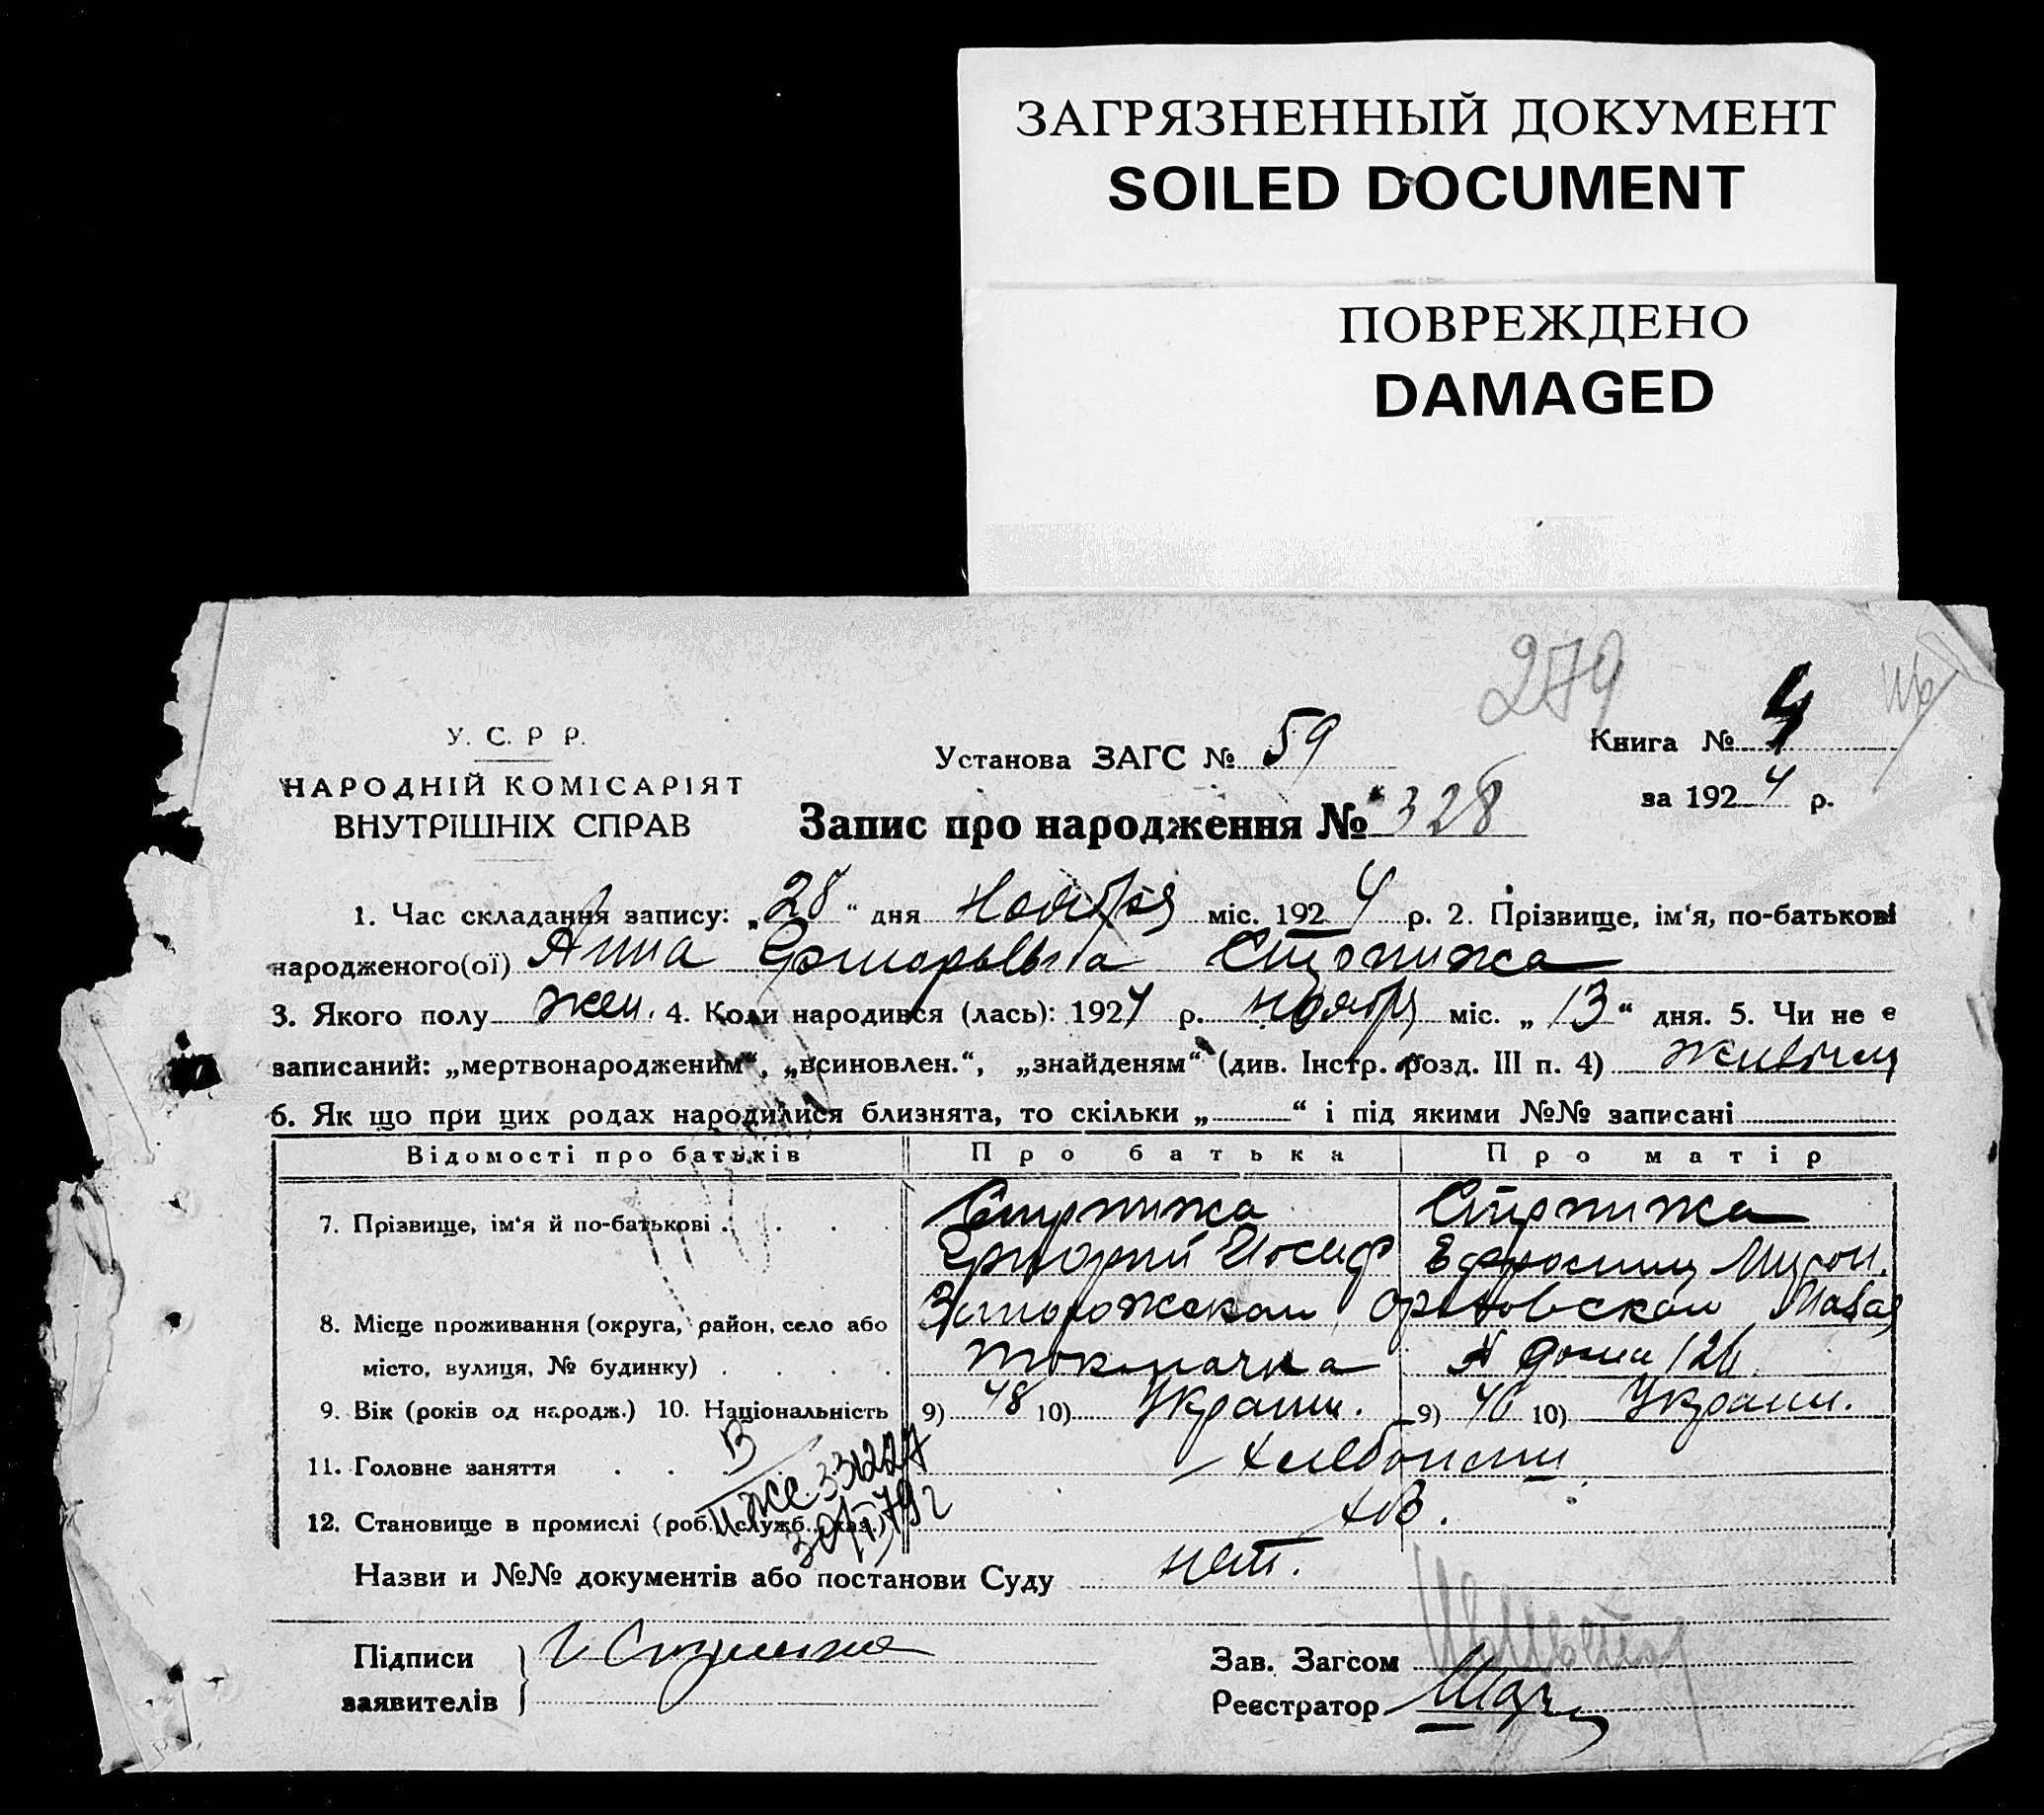 ЗАГРЯЗНЕННЫЙ ДОКУМЕНТ
SOILED DOCUMENT
ПОВРЕЖДЕНО
DAMAGED
279
У. С. Р Р.
НАРОДНІЙ КОМІСАРІЯТ
ВНУТРІШНІХ СПРАВ
Установа ЗАГС № 59
Книга № 4
за 1924 р.
Запис про народження № 328
1. Час складання запису: „28“ дня Ноября міс. 1924 р. 2. Прізвище, ім'я, по-батькові
народженого(ої) Анна Григорьевна Стрижижа
3. Якого полу жен. 4. Коли народився (лась): 1924 р. ноября міс. „13“ дня. 5. Чи не є
записаний: „мертвонародженим“, „всиновлен.“, „знайденям“ (див. Інстр. розд. III п. 4) живым
6. Як що при цих родах народилися близнята, то скільки „ “ і під якими №№ записані
Відомості про батьків Про батька Про матір
7. Прізвище, ім'я й по-батькові
Григорий Иосиф Ефросиния Мирон.
8. Місце проживання (округа, район, село або Запорожской Ореховской Малая
місто, вулиця, № будинку) Токмачка № дома 126
9. Вік (років од народж.) 10. Національність 9) 48 10) Украин. 9) 46 10) Украин.
11. Головне заняття хлебопаши
12. Становище в промислі (роб., служб., хаз.) хоз.
Назви и №№ документів або постанови Суду нет.
Підписи
заявителів
Зав. Загсом
Реєстратор